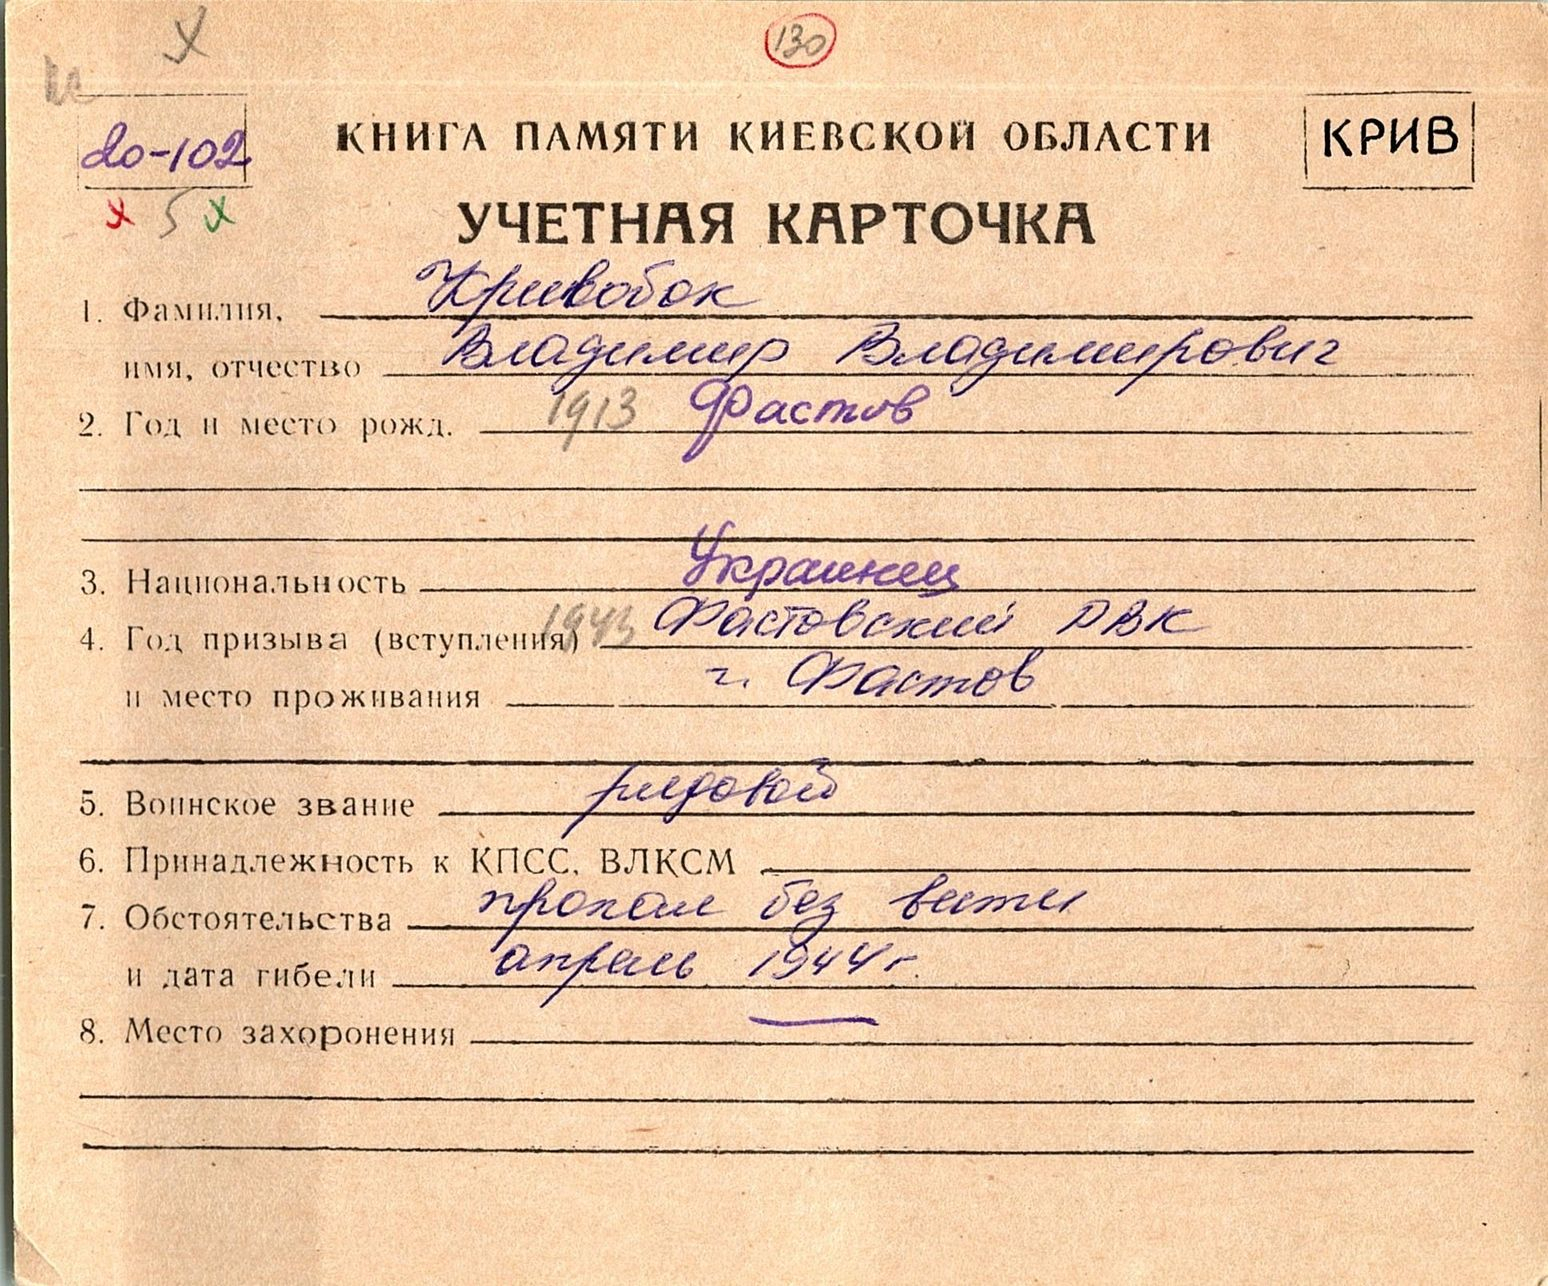 130
20-102
КНИГА ПАМЯТИ КИЕВСКОЙ ОБЛАСТИ
КРИВ
х 5 х
УЧЕТНАЯ КАРТОЧКА
1. Фамилия, Кривобок
имя, отчество Владимир Владимирович
2. Год и место рожд. 1913 Фастов
3. Национальность Украинец
4. Год призыва (вступления) 1943 Фастовский РВК
и место проживания г. Фастов
5. Воинское звание рядовой
6. Принадлежность к КПСС, ВЛКСМ
7. Обстоятельства пропал без вести
и дата гибели апрель 1944 г.
8. Место захоронения —